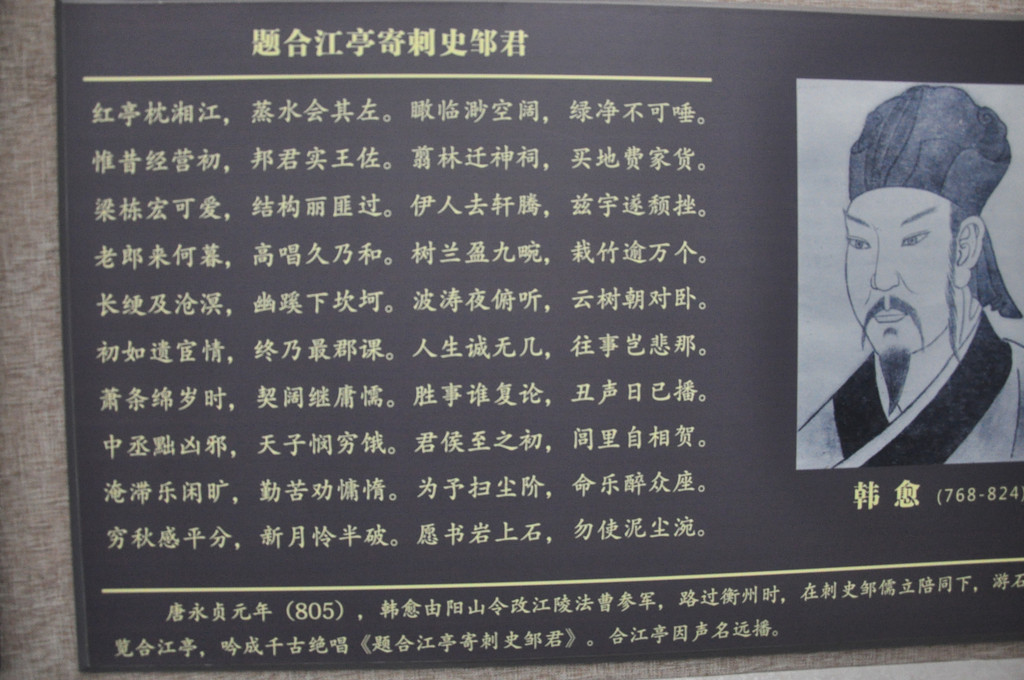 题合江亭寄刺史邹君
红亭枕湘江，蒸水会其左。瞰临渺空阔，绿净不可唾。
惟昔经营初，邦君实王佐。翦林迁神祠，买地费家货。
梁栋宏可爱，结构丽匪过。伊人去轩腾，兹宇遂颓挫。
老郎来何暮，高唱久乃和。树兰盈九畹，栽竹逾万个。
长绠及沧溟，幽蹊下坎坷。波涛夜俯听，云树朝对卧。
初如遗宦情，终乃最郡课。人生诚无几，往事岂悲那。
萧条绵岁时，契阔继庸懦。胜事谁复论，丑声日已播。
中丞黜凶邪，天子悯穷饿。君侯至之初，闾里自相贺。
淹滞乐闲旷，勤苦劝慵惰。为予扫尘阶，命乐醉众座。
穷秋感平分，新月怜半破。愿书岩上石，勿使泥尘涴。
韩愈 (768-824)
唐永贞元年（805），韩愈由阳山令改江陵法曹参军，路过衡州时，在刺史邹儒立陪同下，游石
览合江亭，吟成千古绝唱《题合江亭寄刺史邹君》。合江亭因声名远播。